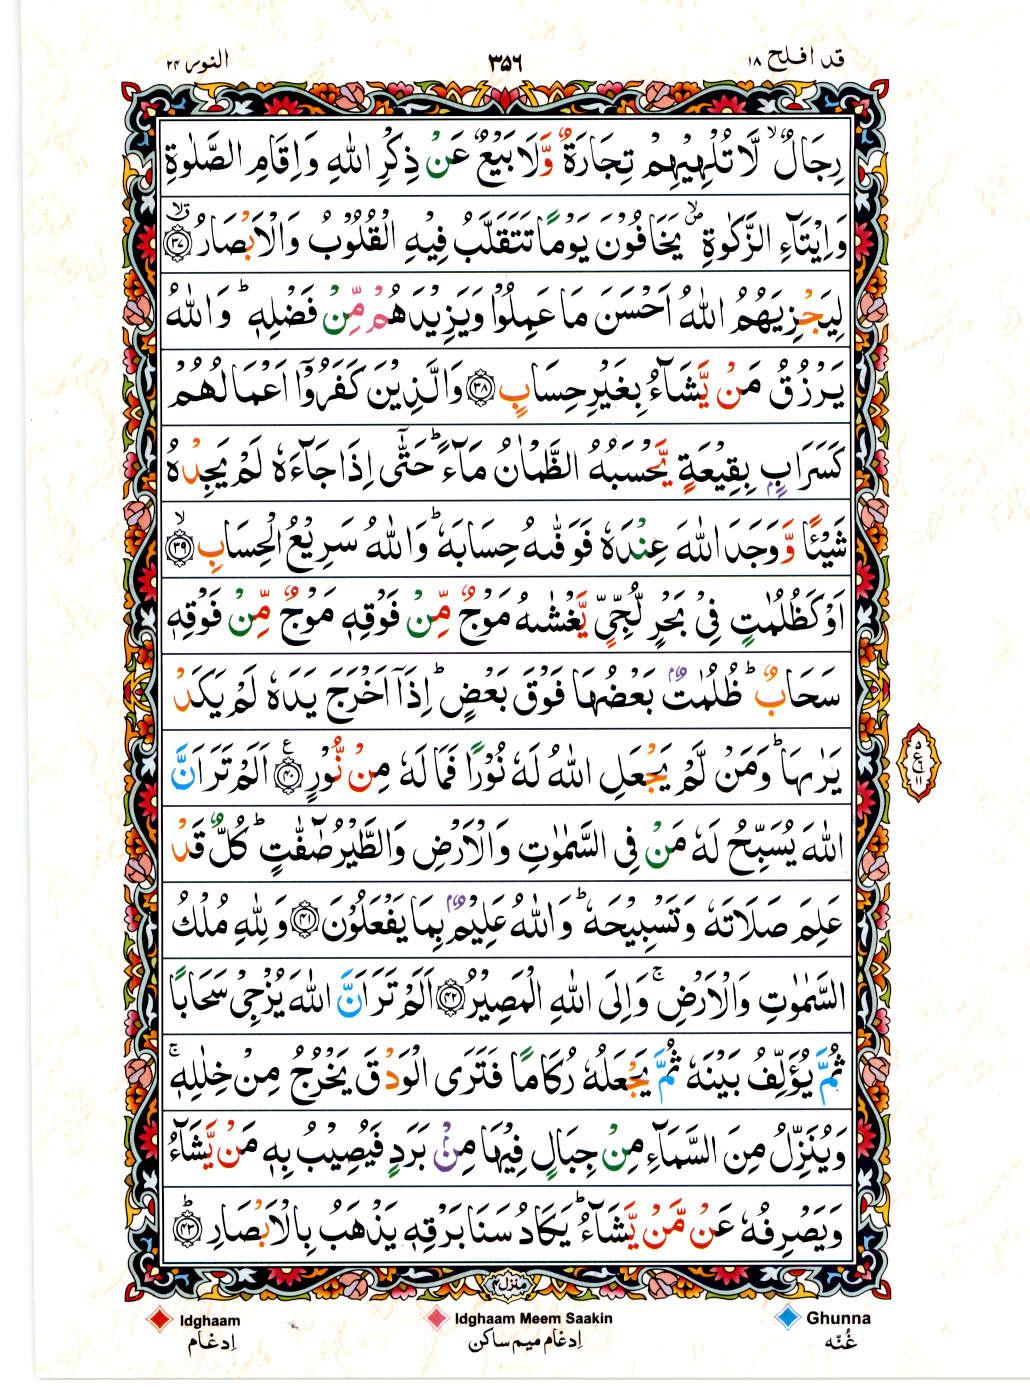 قد افلح ۱۸
۳۵۶
النور ۲۴
رِجَالٌ ۙ لَّا تُلْهِيْهِمْ تِجَارَةٌ وَّلَا بَيْعٌ عَنْ ذِكْرِ اللّٰهِ وَاِقَامِ الصَّلٰوةِ
وَاِيْتَآءِ الزَّكٰوةِ ۙ يَخَافُوْنَ يَوْمًا تَتَقَلَّبُ فِيْهِ الْقُلُوْبُ وَالْاَبْصَارُ ۙ ﴿۳۷﴾
لِيَجْزِيَهُمُ اللّٰهُ اَحْسَنَ مَا عَمِلُوْا وَيَزِيْدَهُمْ مِّنْ فَضْلِهٖ ؕ وَاللّٰهُ
يَرْزُقُ مَنْ يَّشَآءُ بِغَيْرِ حِسَابٍ ﴿۳۸﴾ وَالَّذِيْنَ كَفَرُوْۤا اَعْمَالُهُمْ
كَسَرَابٍۭ بِقِيْعَةٍ يَّحْسَبُهُ الظَّمْاٰنُ مَآءً ؕ حَتّٰۤى اِذَا جَآءَهٗ لَمْ يَجِدْهُ
شَيْئًا وَّوَجَدَ اللّٰهَ عِنْدَهٗ فَوَفّٰىهُ حِسَابَهٗ ؕ وَاللّٰهُ سَرِيْعُ الْحِسَابِ ۙ ﴿۳۹﴾
اَوْ كَظُلُمٰتٍ فِيْ بَحْرٍ لُّجِّيٍّ يَّغْشٰىهُ مَوْجٌ مِّنْ فَوْقِهٖ مَوْجٌ مِّنْ فَوْقِهٖ
سَحَابٌ ؕ ظُلُمٰتٌۢ بَعْضُهَا فَوْقَ بَعْضٍ ؕ اِذَاۤ اَخْرَجَ يَدَهٗ لَمْ يَكَدْ
يَرٰىهَا ؕ وَمَنْ لَّمْ يَجْعَلِ اللّٰهُ لَهٗ نُوْرًا فَمَا لَهٗ مِنْ نُّوْرٍ ﴿۴۰﴾ ع اَلَمْ تَرَ اَنَّ
اللّٰهَ يُسَبِّحُ لَهٗ مَنْ فِى السَّمٰوٰتِ وَالْاَرْضِ وَالطَّيْرُ صٰٓفّٰتٍ ؕ كُلٌّ قَدْ
عَلِمَ صَلَاتَهٗ وَتَسْبِيْحَهٗ ؕ وَاللّٰهُ عَلِيْمٌۢ بِمَا يَفْعَلُوْنَ ﴿۴۱﴾ وَلِلّٰهِ مُلْكُ
السَّمٰوٰتِ وَالْاَرْضِ ۚ وَاِلَى اللّٰهِ الْمَصِيْرُ ﴿۴۲﴾ اَلَمْ تَرَ اَنَّ اللّٰهَ يُزْجِيْ سَحَابًا
ثُمَّ يُؤَلِّفُ بَيْنَهٗ ثُمَّ يَجْعَلُهٗ رُكَامًا فَتَرَى الْوَدْقَ يَخْرُجُ مِنْ خِلٰلِهٖ ۚ
وَيُنَزِّلُ مِنَ السَّمَآءِ مِنْ جِبَالٍ فِيْهَا مِنْۢ بَرَدٍ فَيُصِيْبُ بِهٖ مَنْ يَّشَآءُ
وَيَصْرِفُهٗ عَنْ مَّنْ يَّشَآءُ ؕ يَكَادُ سَنَا بَرْقِهٖ يَذْهَبُ بِالْاَبْصَارِ ؕ ﴿۴۳﴾
منزل ۴
Ghunna
Idghaam Meem Saakin
Idghaam
غُنّه
اِدغام ميم ساكن
اِدغام